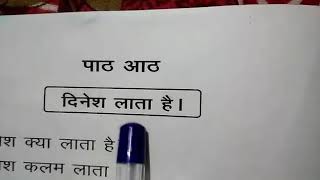 पाठ आठ
दिनेश लाता है।
क्या लाता है
कलम लाता